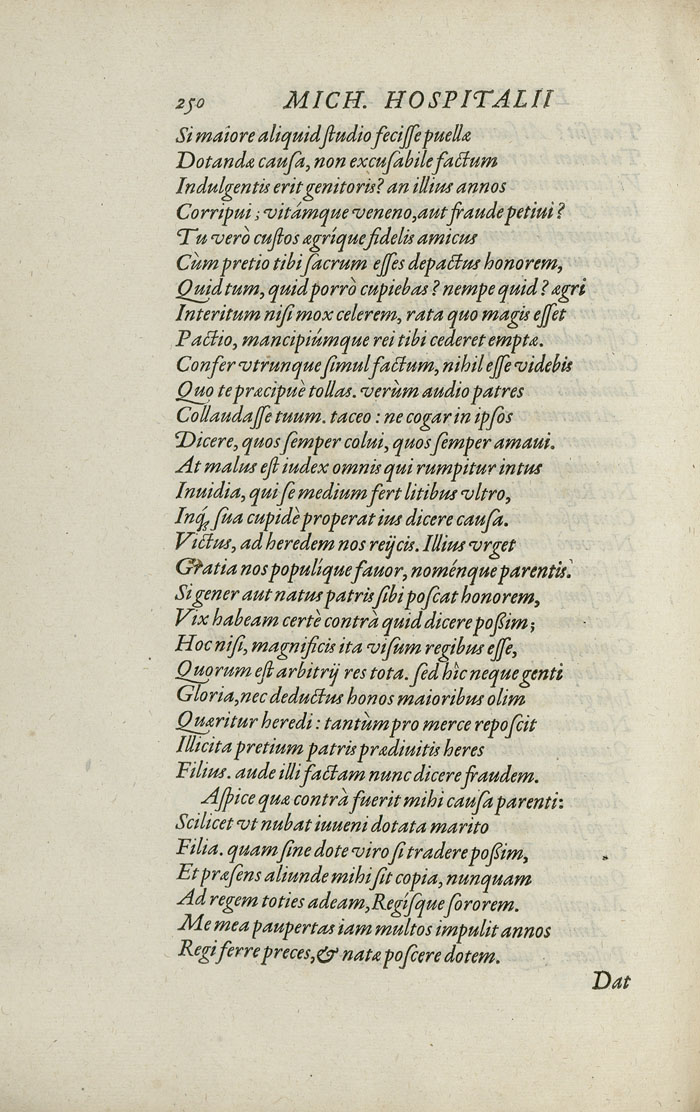 250 MICH. HOSPITALII
Si maiore aliquid ſtudio feciſſe puellæ
Dotandæ cauſa, non excuſabile factum
Indulgentis erit genitoris? an illius annos
Corripui; vitámque veneno, aut fraude petiui?
Tu verò cuſtos ægríque fidelis amicus
Cùm pretio tibi ſacrum eſſes depactus honorem,
Quid tum, quid porrò cupiebas? nempe quid? ægri
Interitum niſi mox celerem, rata quo magis eſſet
Pactio, mancipiúmque rei tibi cederet emptæ.
Confer vtrunque ſimul factum, nihil eſſe videbis
Quo te præcipuè tollas. verùm audio patres
Collaudaſſe tuum. taceo: ne cogar in ipſos
Dicere, quos ſemper colui, quos ſemper amaui.
At malus eſt iudex omnis qui rumpitur intus
Inuidia, qui ſe medium fert litibus vltro,
Inq; ſua cupidè properat ius dicere cauſa.
Victus, ad heredem nos reijcis. Illius vrget
Gratia nos populíque fauor, noménque parentis.
Si gener aut natus patris ſibi poſcat honorem,
Vix habeam certè contrà quid dicere poßim;
Hoc niſi, magnificis ita viſum regibus eſſe,
Quorum eſt arbitrij res tota. ſed hîc neque genti
Gloria, nec deductus honos maioribus olim
Quæritur heredi: tantùm pro merce repoſcit
Illicita pretium patris prædiuitis heres
Filius. aude illi factam nunc dicere fraudem.
Aſpice quæ contrà fuerit mihi cauſa parenti:
Scilicet vt nubat iuueni dotata marito
Filia. quam ſine dote viro ſi tradere poßim,
Et præſens aliunde mihi ſit copia, nunquam
Ad regem toties adeam, Regíſque ſororem.
Me mea paupertas iam multos impulit annos
Regi ferre preces, & natæ poſcere dotem.
Dat